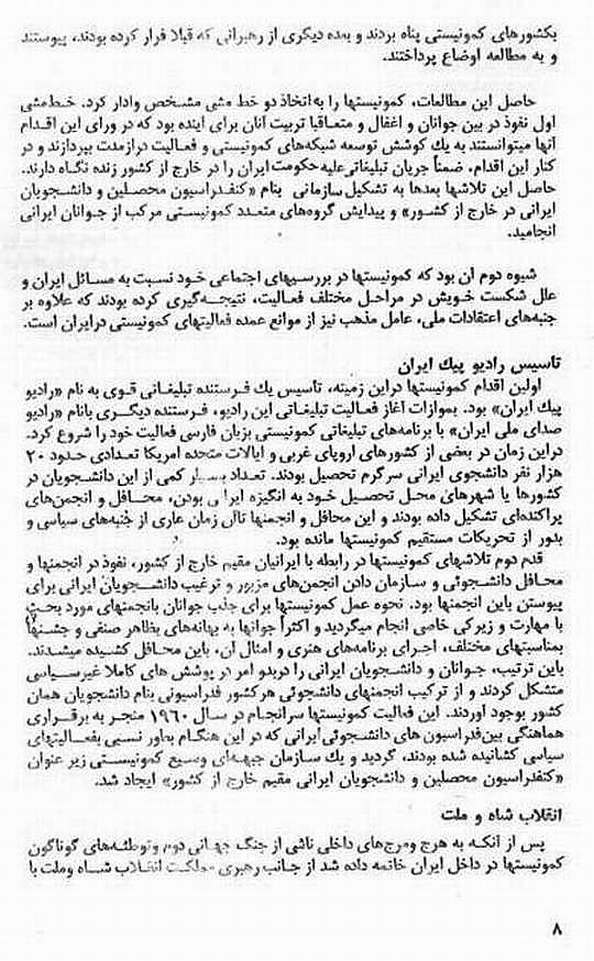 بکشورهای کمونیستی پناه بردند و بعده دیگری از رهبرانی که قبلا فرار کرده بودند، پیوستند
و به مطالعه اوضاع پرداختند.
حاصل این مطالعات، کمونیستها را به اتخاذ دو خط مشی مشخص وادار کرد. خط مشی
اول نفوذ در بین جوانان و اغفال و متعاقبا تربیت آنان برای آینده بود که در ورای این اقدام
آنها میتوانستند به یك کوشش توسعه شبکه‌های کمونیستی و فعالیت درازمدت بپردازند و در
کنار این اقدام، ضمناً جریان تبلیغاتی علیه حکومت ایران را در خارج از کشور زنده نگاه دارند.
حاصل این تلاشها بعدها به تشکیل سازمانی بنام «کنفدراسیون محصلین و دانشجویان
ایرانی در خارج از کشور» و پیدایش گروه‌های متعدد کمونیستی مرکب از جوانان ایرانی
انجامید.
شیوه دوم آن بود که کمونیستها در بررسیهای اجتماعی خود نسبت به مسائل ایران و
علل شکست خویش در مراحل مختلف فعالیت، نتیجه‌گیری کرده بودند که علاوه بر
جنبه‌های اعتقادات ملی، عامل مذهب نیز از موانع عمده فعالیتهای کمونیستی درایران است.
تاسیس رادیو پیك ایران
اولین اقدام کمونیستها دراین زمینه، تاسیس یك فرستنده تبلیغاتی قوی به نام «رادیو
پیك ایران» بود. بموازات آغاز فعالیت تبلیغاتی این رادیو، فرستنده دیگری بانام «رادیو
صدای ملی ایران» با برنامه‌های تبلیغاتی کمونیستی بزبان فارسی فعالیت خود را شروع کرد.
دراین زمان در بعضی از کشورهای اروپای غربی و ایالات متحده امریکا تعدادی حدود ۲۰
هزار نفر دانشجوی ایرانی سرگرم تحصیل بودند. تعداد بسیار کمی از این دانشجویان در
کشورها یا شهرهای محل تحصیل خود به انگیزه ایرانی بودن، محافل و انجمن‌های
پراکنده‌ای تشکیل داده بودند و این محافل و انجمنها تاآن زمان عاری از جنبه‌های سیاسی و
بدور از تحریکات مستقیم کمونیستها مانده بود.
قدم دوم تلاشهای کمونیستها در رابطه با ایرانیان مقیم خارج از کشور، نفوذ در انجمنها و
محافل دانشجوئی و سازمان دادن انجمن‌های مزبور و ترغیب دانشجویان ایرانی برای
پیوستن باین انجمنها بود. نحوه عمل کمونیستها برای جلب جوانان بانجمنهای مورد بحث
با مهارت و زیرکی خاصی انجام میگردید و اکثراً جوانها به بهانه‌های بظاهر صنفی و جشنها
بمناسبتهای مختلف، اجرای برنامه‌های هنری و امثال آن، باین محافل کشیده میشدند.
باین ترتیب، جوانان و دانشجویان ایرانی را دربدو امر در پوشش های کاملا غیرسیاسی
متشکل کردند و از ترکیب انجمنهای دانشجوئی هرکشور فدراسیونی بنام دانشجویان همان
کشور بوجود آوردند. این فعالیت کمونیستها سرانجام در سال ۱۹۶۰ منجر به برقراری
هماهنگی بین‌فدراسیون های دانشجوئی ایرانی که در این هنگام بطور نسبی بفعالیتهای
سیاسی کشانیده شده بودند، گردید و یك سازمان جبهه‌ای وسیع کمونیستی زیر عنوان
«کنفدراسیون محصلین و دانشجویان ایرانی مقیم خارج از کشور» ایجاد شد.
انقلاب شاه و ملت
پس از آنکه به هرج ومرج‌های داخلی ناشی از جنگ جهانی دوم وتوطئه‌های گوناگون
کمونیستها در داخل ایران خاتمه داده شد از جانب رهبری مملکت انقلاب شاه وملت با
۸